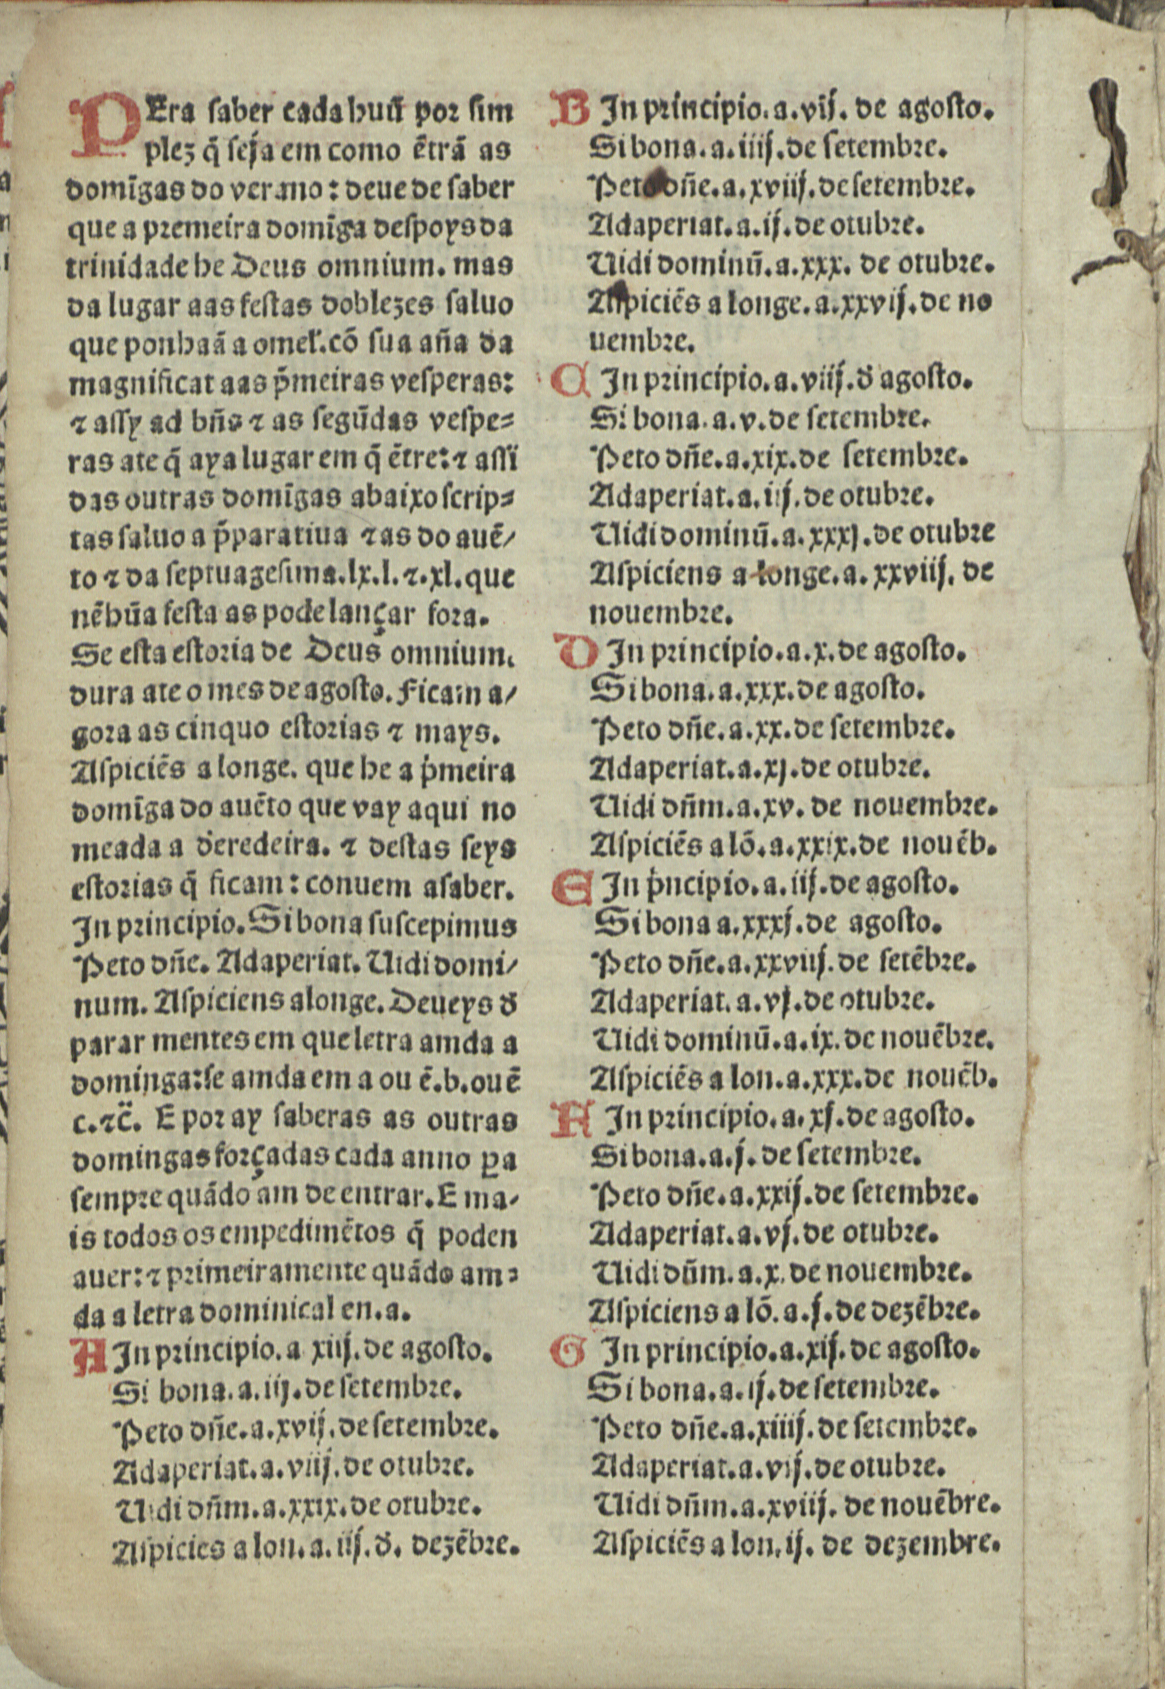 PEra saber cada huũ por sim
plez q̃ seja em como ẽtrã as
domĩgas do verano: deue de saber
que a premeira domĩga despoys da
trinidade he Deus omnium. mas
da lugar aas festas doblezes saluo
que ponhaã a omel'. cõ sua aña da
magnificat aas p̃meiras vesperas:
⁊ assy ad bñs ⁊ as segũdas vespe⸗
ras ate q̃ aya lugar em q̃ ẽtre: ⁊ assi
das outras domĩgas abaixo scrip⸗
tas saluo a p̃paratiua ⁊ as do auẽ/
to ⁊ da septuagesima. lx. l. ⁊. xl. que
nẽhũa festa as pode lançar fora.
Se esta estoria de Deus omnium.
dura ate o mes de agosto. Ficam a/
gora as cinquo estorias ⁊ mays.
Aspiciẽs a longe. que he a p̃meira
domĩga do auẽto que vay aqui no
meada a deredeira. ⁊ destas seys
estorias q̃ ficam: conuem asaber.
In principio. Si bona suscepimus
Peto dñe. Adaperiat. Uidi domi/
num. Aspiciens alonge. Deueys đ
parar mentes em que letra amda a
dominga: se amda em a ou ẽ. b. ou ẽ
c. ⁊c̃. E por ay saberas as outras
domingas forçadas cada anno ꝑa
sempre quãdo am de entrar. E ma/
is todos os empedimẽtos q̃ poden
auer: ⁊ primeiramente quãdo am⸗
da a letra dominical en. a.
A In principio. a xiij. de agosto.
Si bona. a. iij. de setembre.
Peto dñe. a. xvij. de setembre.
Adaperiat. a. viij. de otubre.
Uidi dñm. a. xxix. de otubre.
Aspicies a lon. a. iij. đ. dezẽbre.
B In principio. a. vij. de agosto.
Si bona. a. iiij. de setembre.
Peto dñe. a. xviij. de setembre.
Adaperiat. a. ij. de otubre.
Uidi dominũ. a. xxx. de otubre.
Aspiciẽs a longe. a. xxvij. de no
uembre.
C In principio. a. viij. đ agosto.
Si bona. a. v. de setembre.
Peto dñe. a. xix. de setembre.
Adaperiat. a. iij. de otubre.
Uidi dominũ. a. xxxj. de otubre
Aspiciens a longe. a. xxviij. de
nouembre.
D In principio. a. x. de agosto.
Si bona. a. xxx. de agosto.
Peto dñe. a. xx. de setembre.
Adaperiat. a. xj. de otubre.
Uidi dñm. a. xv. de nouembre.
Aspiciẽs a lõ. a. xxix. de nouẽb.
E In p̃ncipio. a. iij. de agosto.
Si bona a. xxxj. de agosto.
Peto dñe. a. xxviij. de setẽbre.
Adaperiat. a. vj. de otubre.
Uidi dominũ. a. ix. de nouẽbre.
Aspiciẽs a lon. a. xxx. de nouẽb.
F In principio. a. xj. de agosto.
Si bona. a. j. de setembre.
Peto dñe. a. xxij. de setembre.
Adaperiat. a. vj. de otubre.
Uidi dñm. a. x. de nouembre.
Aspiciens a lõ. a. j. de dezẽbre.
G In principio. a. xij. de agosto.
Si bona. a. ij. de setembre.
Peto dñe. a. xiiij. de setembre.
Adaperiat. a. vij. de otubre.
Uidi dñm. a. xviij. de nouẽbre.
Aspiciẽs a lon. ij. de dezembre.